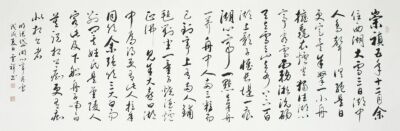 崇禎五年十二月余
住西湖大雪三日湖中
人鳥聲俱絕是日
更定矣余拏一小舟
擁毳衣爐火獨往湖心
亭看雪霧凇沆碭
天與雲與山與水上下一白
湖上影子惟長堤一痕
湖心亭一點與余舟
一芥舟中人兩三粒而
已到亭上有兩人鋪
氈對坐一童子燒酒爐
正沸見余大喜曰湖
中焉得更有此人拉余
同飲余強飲三大白而
別問其姓氏是金陵人
客此及下船舟子喃喃曰
莫說相公癡更有癡
似相公者